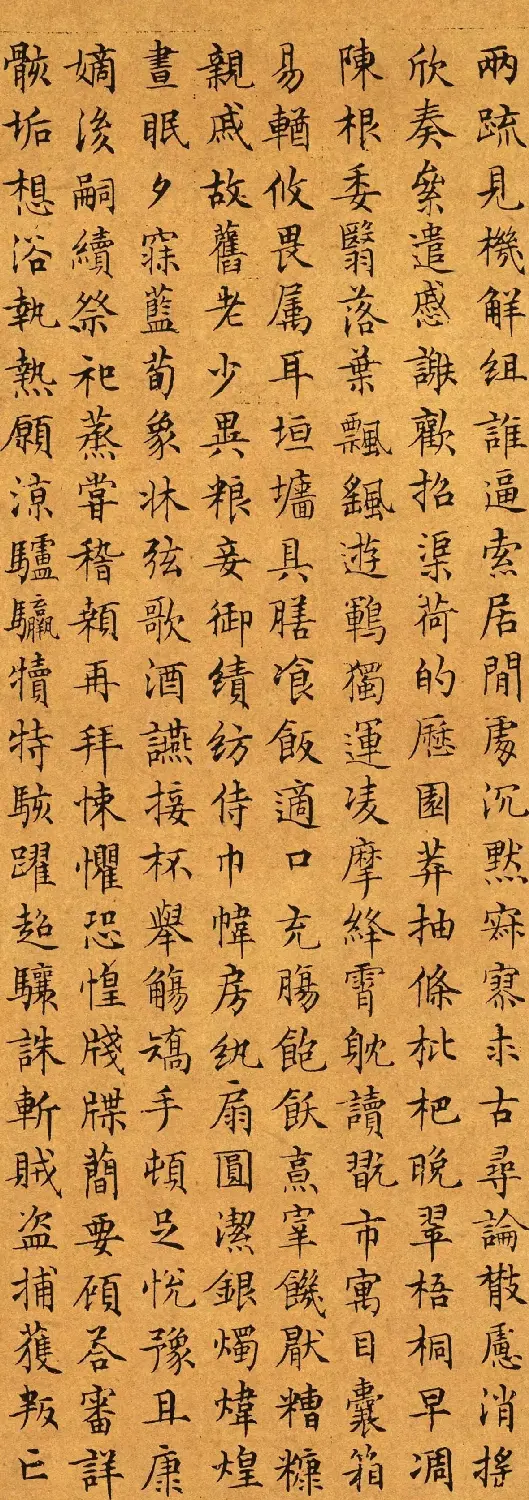 兩疏見機解組誰逼索居閒處沉默寂寥求古尋論散慮消搖
欣奏累遣慼謝歡招渠荷的歷園莽抽條枇杷晚翠梧桐早凋
陳根委翳落葉飄颻遊鵾獨運凌摩絳霄耽讀翫市寓目囊箱
易輶攸畏属耳垣墻具膳飡飯適口充腸飽飫烹宰饑厭糟糠
親戚故舊老少異粮妾御績紡侍巾幃房紈扇圓潔銀燭煒煌
晝眠夕寐藍荀象牀弦歌酒讌接杯舉觴矯手頓足悅豫且康
嫡後嗣續祭祀蒸嘗稽顙再拜悚懼恐惶牋牒簡要顧荅審詳
骸垢想浴執熱願涼驢騾犢特駭躍超驤誅斬賊盜捕獲叛亡